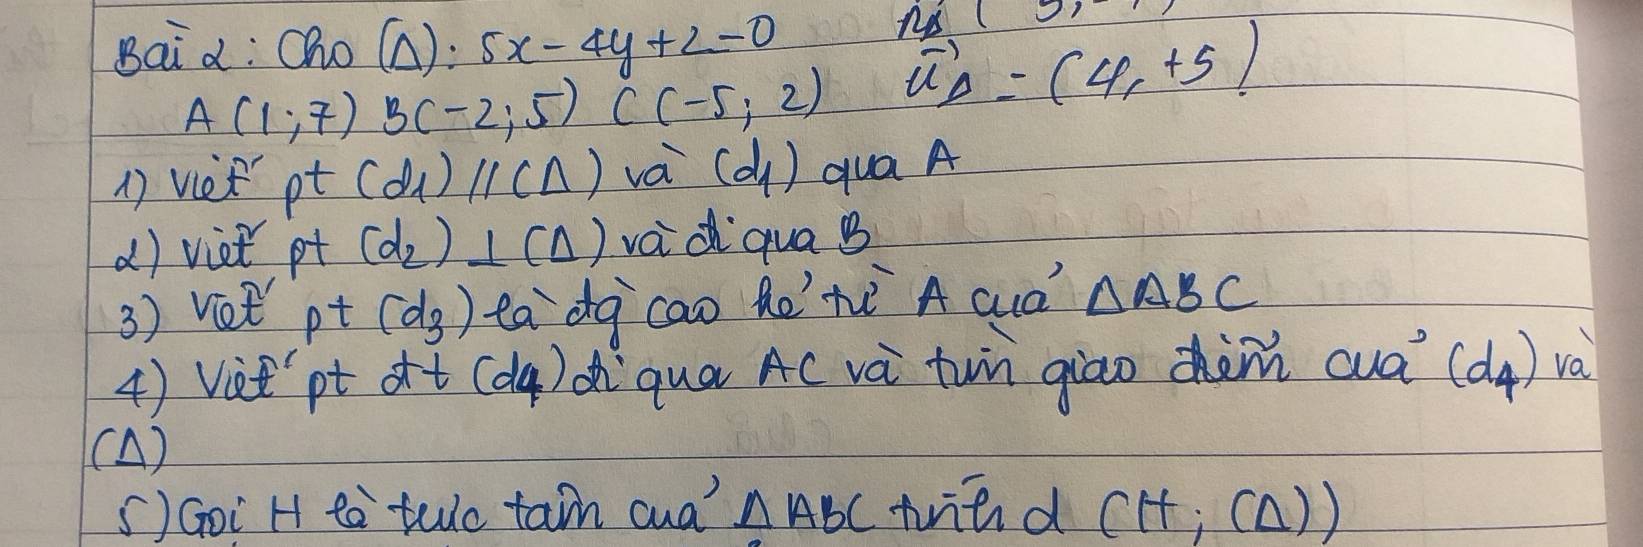 Bài 2: Cho (Δ): 5x-4y+2=0
A(1;7) B(-2;5) C(-5;2) u⃗Δ = (4, +5)
1) Viết pt (d1) // (Δ) và (d1) qua A
2) Viết pt (d2) ⊥ (Δ) và đi qua B
3) Viết pt (d3) là đg cao kẻ từ A của ΔABC
4) Viết pt đt (d4) đi qua AC và tìm giao điểm của (d4) và
(Δ)
5) Gọi H là trực tâm của ΔABC tính d (H; (Δ))